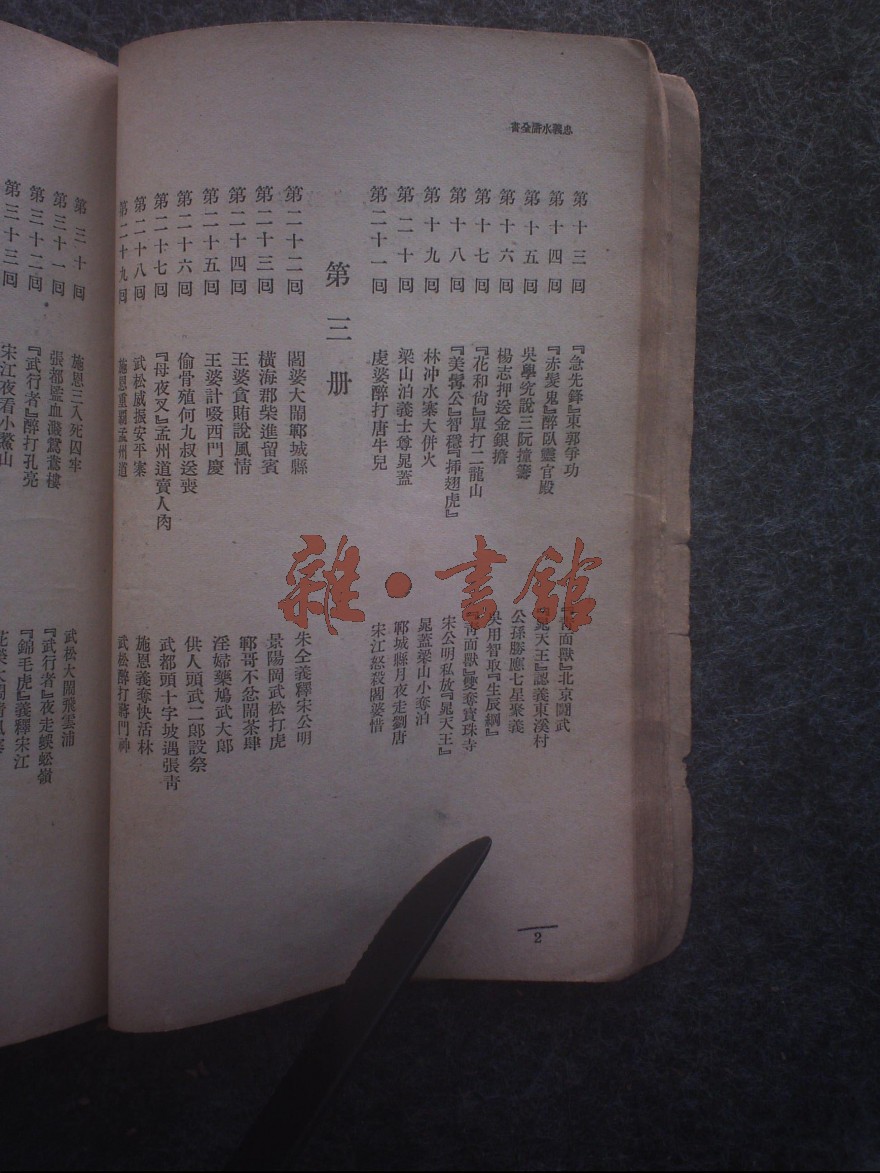 忠義水滸全書
第十三回 『急先鋒』東郭爭功 『靑面獸』北京鬪武
第十四回 『赤髮鬼』醉臥靈官殿 『晁天王』認義東溪村
第十五回 吳學究說三阮撞籌 公孫勝應七星聚義
第十六回 楊志押送金銀擔 吳用智取『生辰綱』
第十七回 『花和尙』單打二龍山 『靑面獸』雙奪寶珠寺
第十八回 『美髯公』智穩『揷翅虎』 宋公明私放『晁天王』
第十九回 林冲水寨大併火 晁蓋梁山小奪泊
第二十回 梁山泊義士尊晁蓋 鄆城縣月夜走劉唐
第二十一回 虔婆醉打唐牛兒 宋江怒殺閻婆惜
第三册
第二十二回 閻婆大鬧鄆城縣 朱仝義釋宋公明
第二十三回 橫海郡柴進留賓 景陽岡武松打虎
第二十四回 王婆貪賄說風情 鄆哥不忿鬧茶肆
第二十五回 王婆計啜西門慶 淫婦藥鴆武大郎
第二十六回 偷骨殖何九叔送喪 供人頭武二郎設祭
第二十七回 『母夜叉』孟州道賣人肉 武都頭十字坡遇張靑
第二十八回 武松威振安平寨 施恩義奪快活林
第二十九回 施恩重霸孟州道 武松醉打蔣門神
2
第三十回 施恩三入死囚牢 武松大鬧飛雲浦
第三十一回 張都監血濺鴛鴦樓 『武行者』夜走蜈蚣嶺
第三十二回 『武行者』醉打孔亮 『錦毛虎』義釋宋江
第三十三回 宋江夜看小鰲山
雜·書館